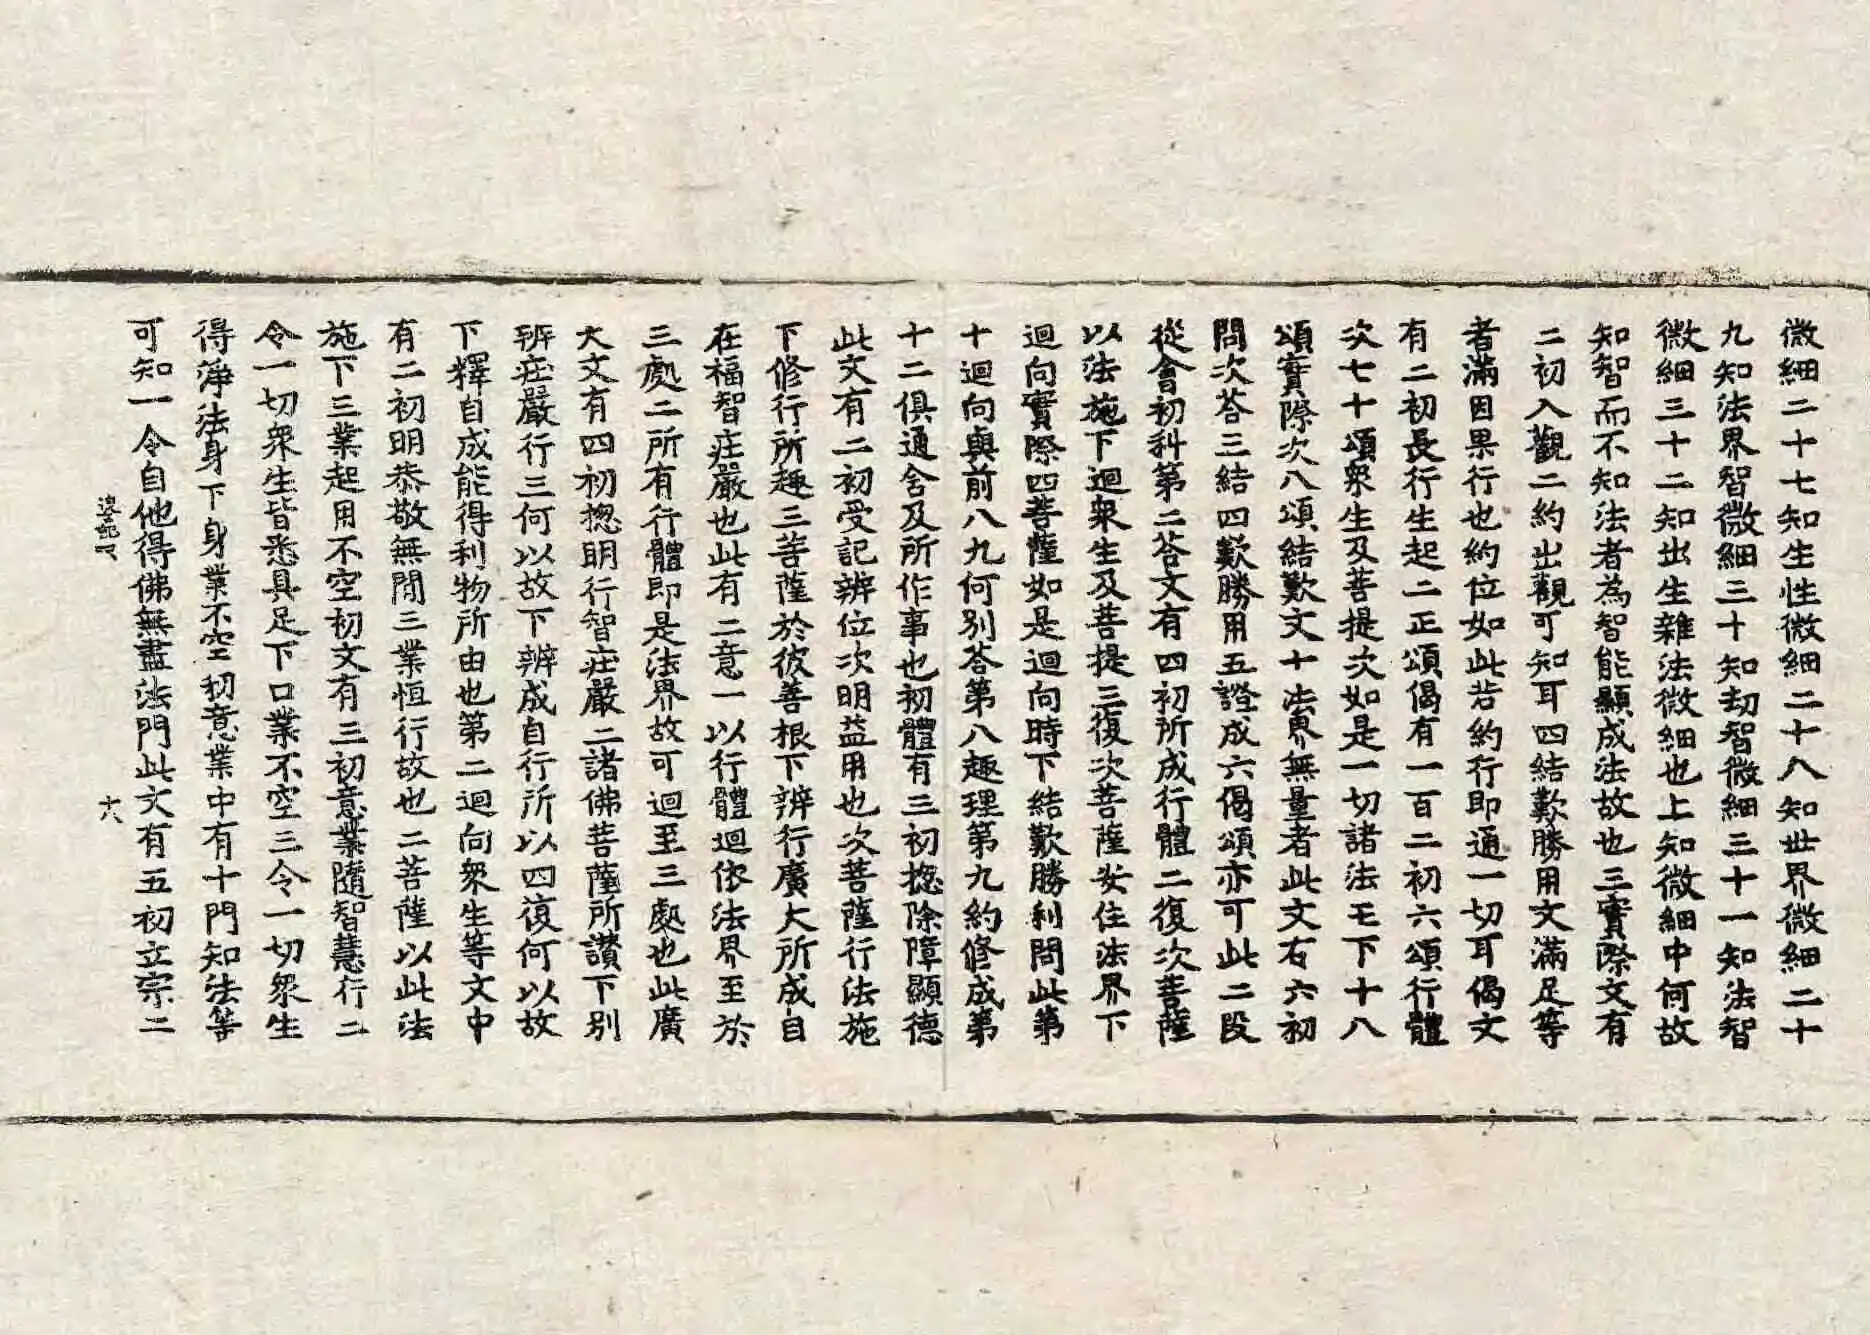 微細二十七知生性微細二十八知世界微細二十
九知法界智微細三十知刧智微細三十一知法智
微細三十二知出生雜法微細也上知微細中何故
知智而不知法者為智能顯成法故也三實際文有
二初入觀二約出觀可知耳四結歎勝用文滿足等
者滿因果行也約位如此若約行即通一切耳偈文
有二初長行生起二正頌偈有一百二初六頌行體
次七十頌衆生及菩提次如是一切諸法王下十八
頌實際次八頌結歎文十法界無量者此文右六初
問次荅三結四歎勝用五證成六偈頌亦可此二段
從會初科第二荅文有四初所成行體二復次菩薩
以法施下迴衆生及菩提三復次菩薩安住法界下
迴向實際四菩薩如是迴向時下結歎勝利問此第
十迴向與前八九何別荅第八趣理第九約修成第
十二俱通舍及所作事也初體有三初揔除障顯德
此文有二初受記辨位次明益用也次菩薩行法施
下修行所趣三菩薩於彼善根下辨行廣大所成自
在福智莊嚴也此有二意一以行體迴依法界至於
三處二所有行體即是法界故可迴至三處也此廣
大文有四初揔明行智莊嚴二諸佛菩薩所讃下別
辨莊嚴行三何以故下辨成自行所以四復何以故
下釋自成能得利物所由也第二迴向衆生等文中
有二初明恭敬無閒三業恒行故也二菩薩以此法
施下三業起用不空初文有三初意業隨智慧行二
令一切衆生皆悉具足下口業不空三令一切衆生
得淨法身下身業不空初意業中有十門知法等
可知一令自他得佛無盡法門此文有五初立宗二
十六